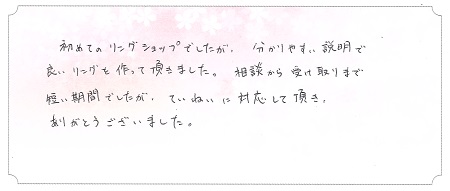 初めてのリングショップでしたが、分かりやすい説明で
良いリングを作って頂きました。相談から受け取りまで
短い期間でしたが、ていねいに対応して頂き、
ありがとうございました。